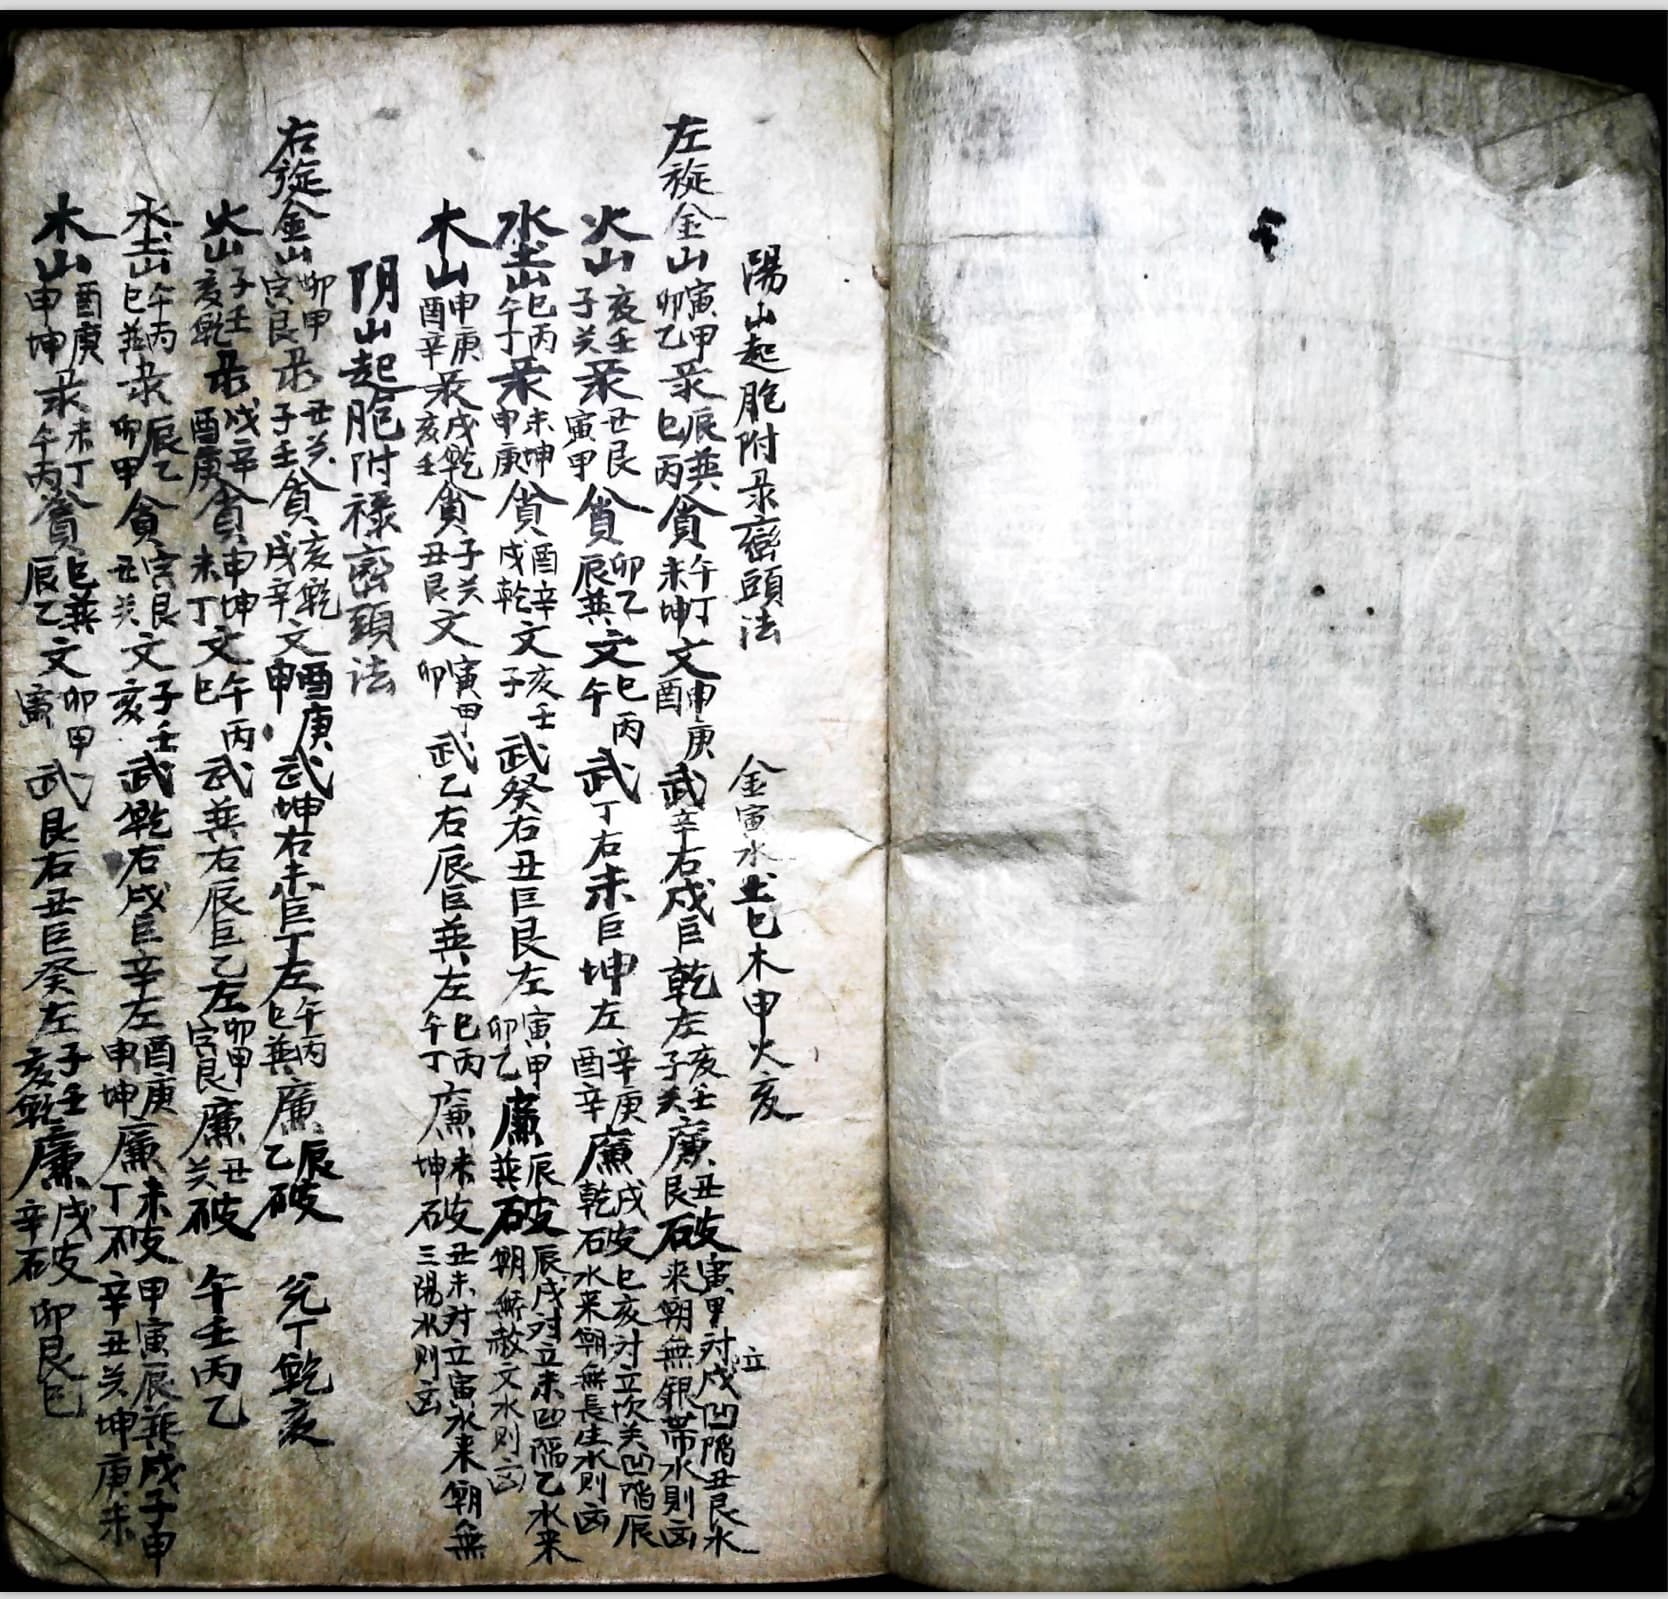 陽山起胞附彔巒頭法　金寅水土巳木申火亥
左旋金山寅甲卯乙彔辰巽巳丙貪午丁未坤文申庚酉武辛右戌巨乾左亥壬子癸廉丑艮破寅甲対立戌凹陷丑艮水来朝無銀帯水則凶
火山亥壬子癸彔丑艮寅甲貪卯乙辰巽文巳丙午武丁右未巨坤左辛庚酉辛廉戌乾破巳亥対立坎癸凹陷辰水来朝無長生水則凶
水土山巳丙午丁彔未坤申庚貪酉辛戌乾文亥壬子武癸右丑巨艮左寅甲卯乙廉辰巽破辰戌対立未凹陷乙水来朝無赦文水則凶
木山申庚酉辛彔戌乾亥壬貪子癸丑艮文寅甲卯武乙右辰巨巽左巳丙午丁廉未坤破丑未対立寅水来朝無三陽水則凶
阴山起胞附禄巒頭法
右旋金山卯甲寅艮彔丑癸子壬貪亥乾戌辛文酉庚申武坤右未巨丁左午丙巳巽廉辰乙破　兊丁乾亥
火山子壬亥乾彔戌辛酉庚貪申坤未丁文午丙巳武巽右辰巨乙左卯甲寅艮廉丑癸破　午壬丙乙
水土山午丙巳巽彔辰乙卯甲貪寅艮丑癸文子壬亥武乾右戌巨辛左酉庚申坤廉未丁破甲寅辰巽戌子申辛丑癸坤庚未
木山酉庚申坤彔未丁午丙貪巳巽辰乙文卯甲寅武艮右丑巨癸左子壬亥乾廉戌辛破　卯艮巳